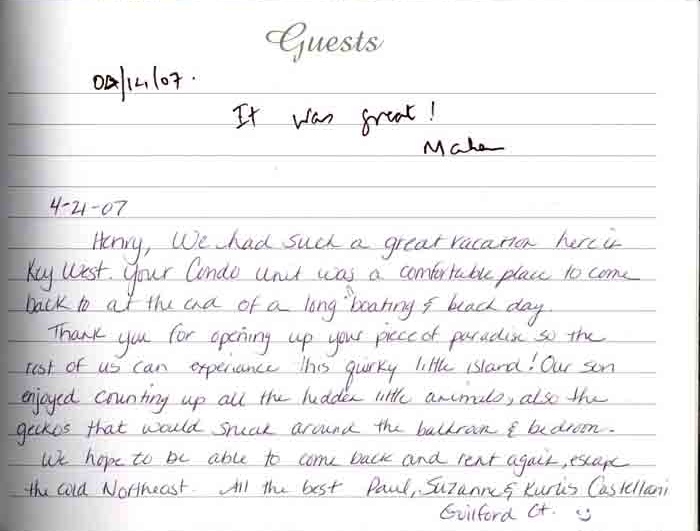 Guests
04/14/07.
It was great!
4-21-07
Henry, We had such a great vacation here in
Key West. Your Condo unit was a comfortable place to come
back to at the end of a long boating & beach day.
Thank you for opening up your piece of paradise so the
rest of us can experiance this quirky little island! Our son
enjoyed counting up all the hidden little animals, also the
geckos that would sneak around the bathroom & bedroom.
We hope to be able to come back and rent again, escape
the cold Northeast. All the best Paul, Suzanne & Kurtis Castellani
Guilford Ct. :)